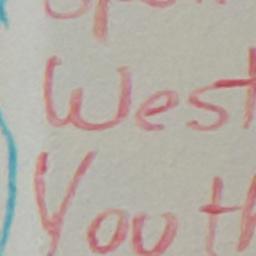 West
Youth